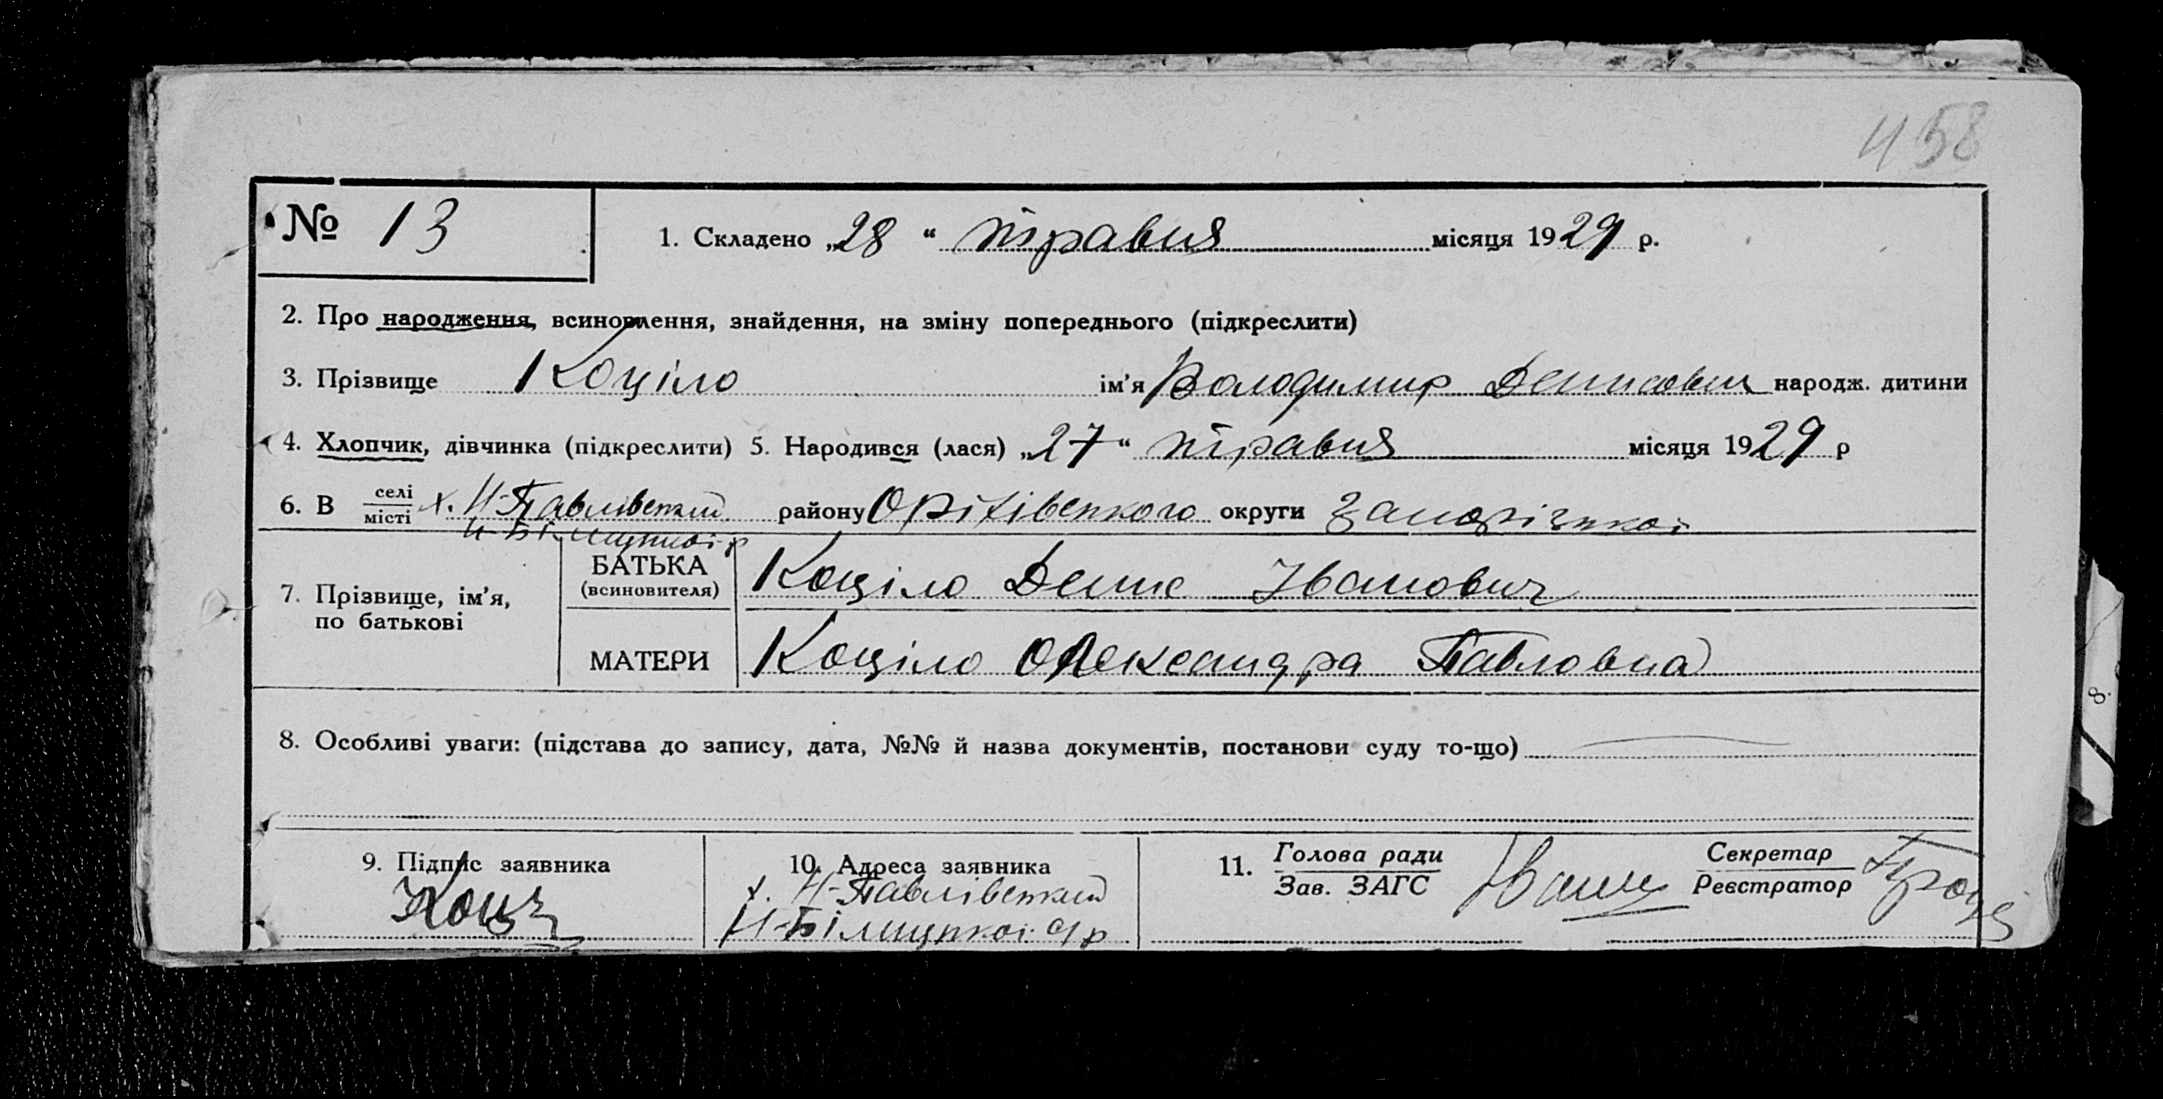 458
№ 13
1. Складено „28“ травня місяця 1929 р.
2. Про народження, всиновлення, знайдення, на зміну попереднього (підкреслити)
3. Прізвище Коціло ім'я Володимир Денисович народж. дитини
4. Хлопчик, дівчинка (підкреслити) 5. Народився (лася) „27“ травня місяця 1929 р
6. В селі місті х. Н-Павлівський району Оріхівського округи Запорізької
Н-Білицької с/р
7. Прізвище, ім'я, по батькові
БАТЬКА (всиновителя) Коціло Денис Іванович
МАТЕРИ Коціло Олександра Павловна
8. Особливі уваги: (підстава до запису, дата, №№ й назва документів, постанови суду то-що)
9. Підпис заявника
10. Адреса заявника
х. Н-Павлівський
Н-Білицької с/р
11. Голова ради Зав. ЗАГС
Секретар Реєстратор
8.